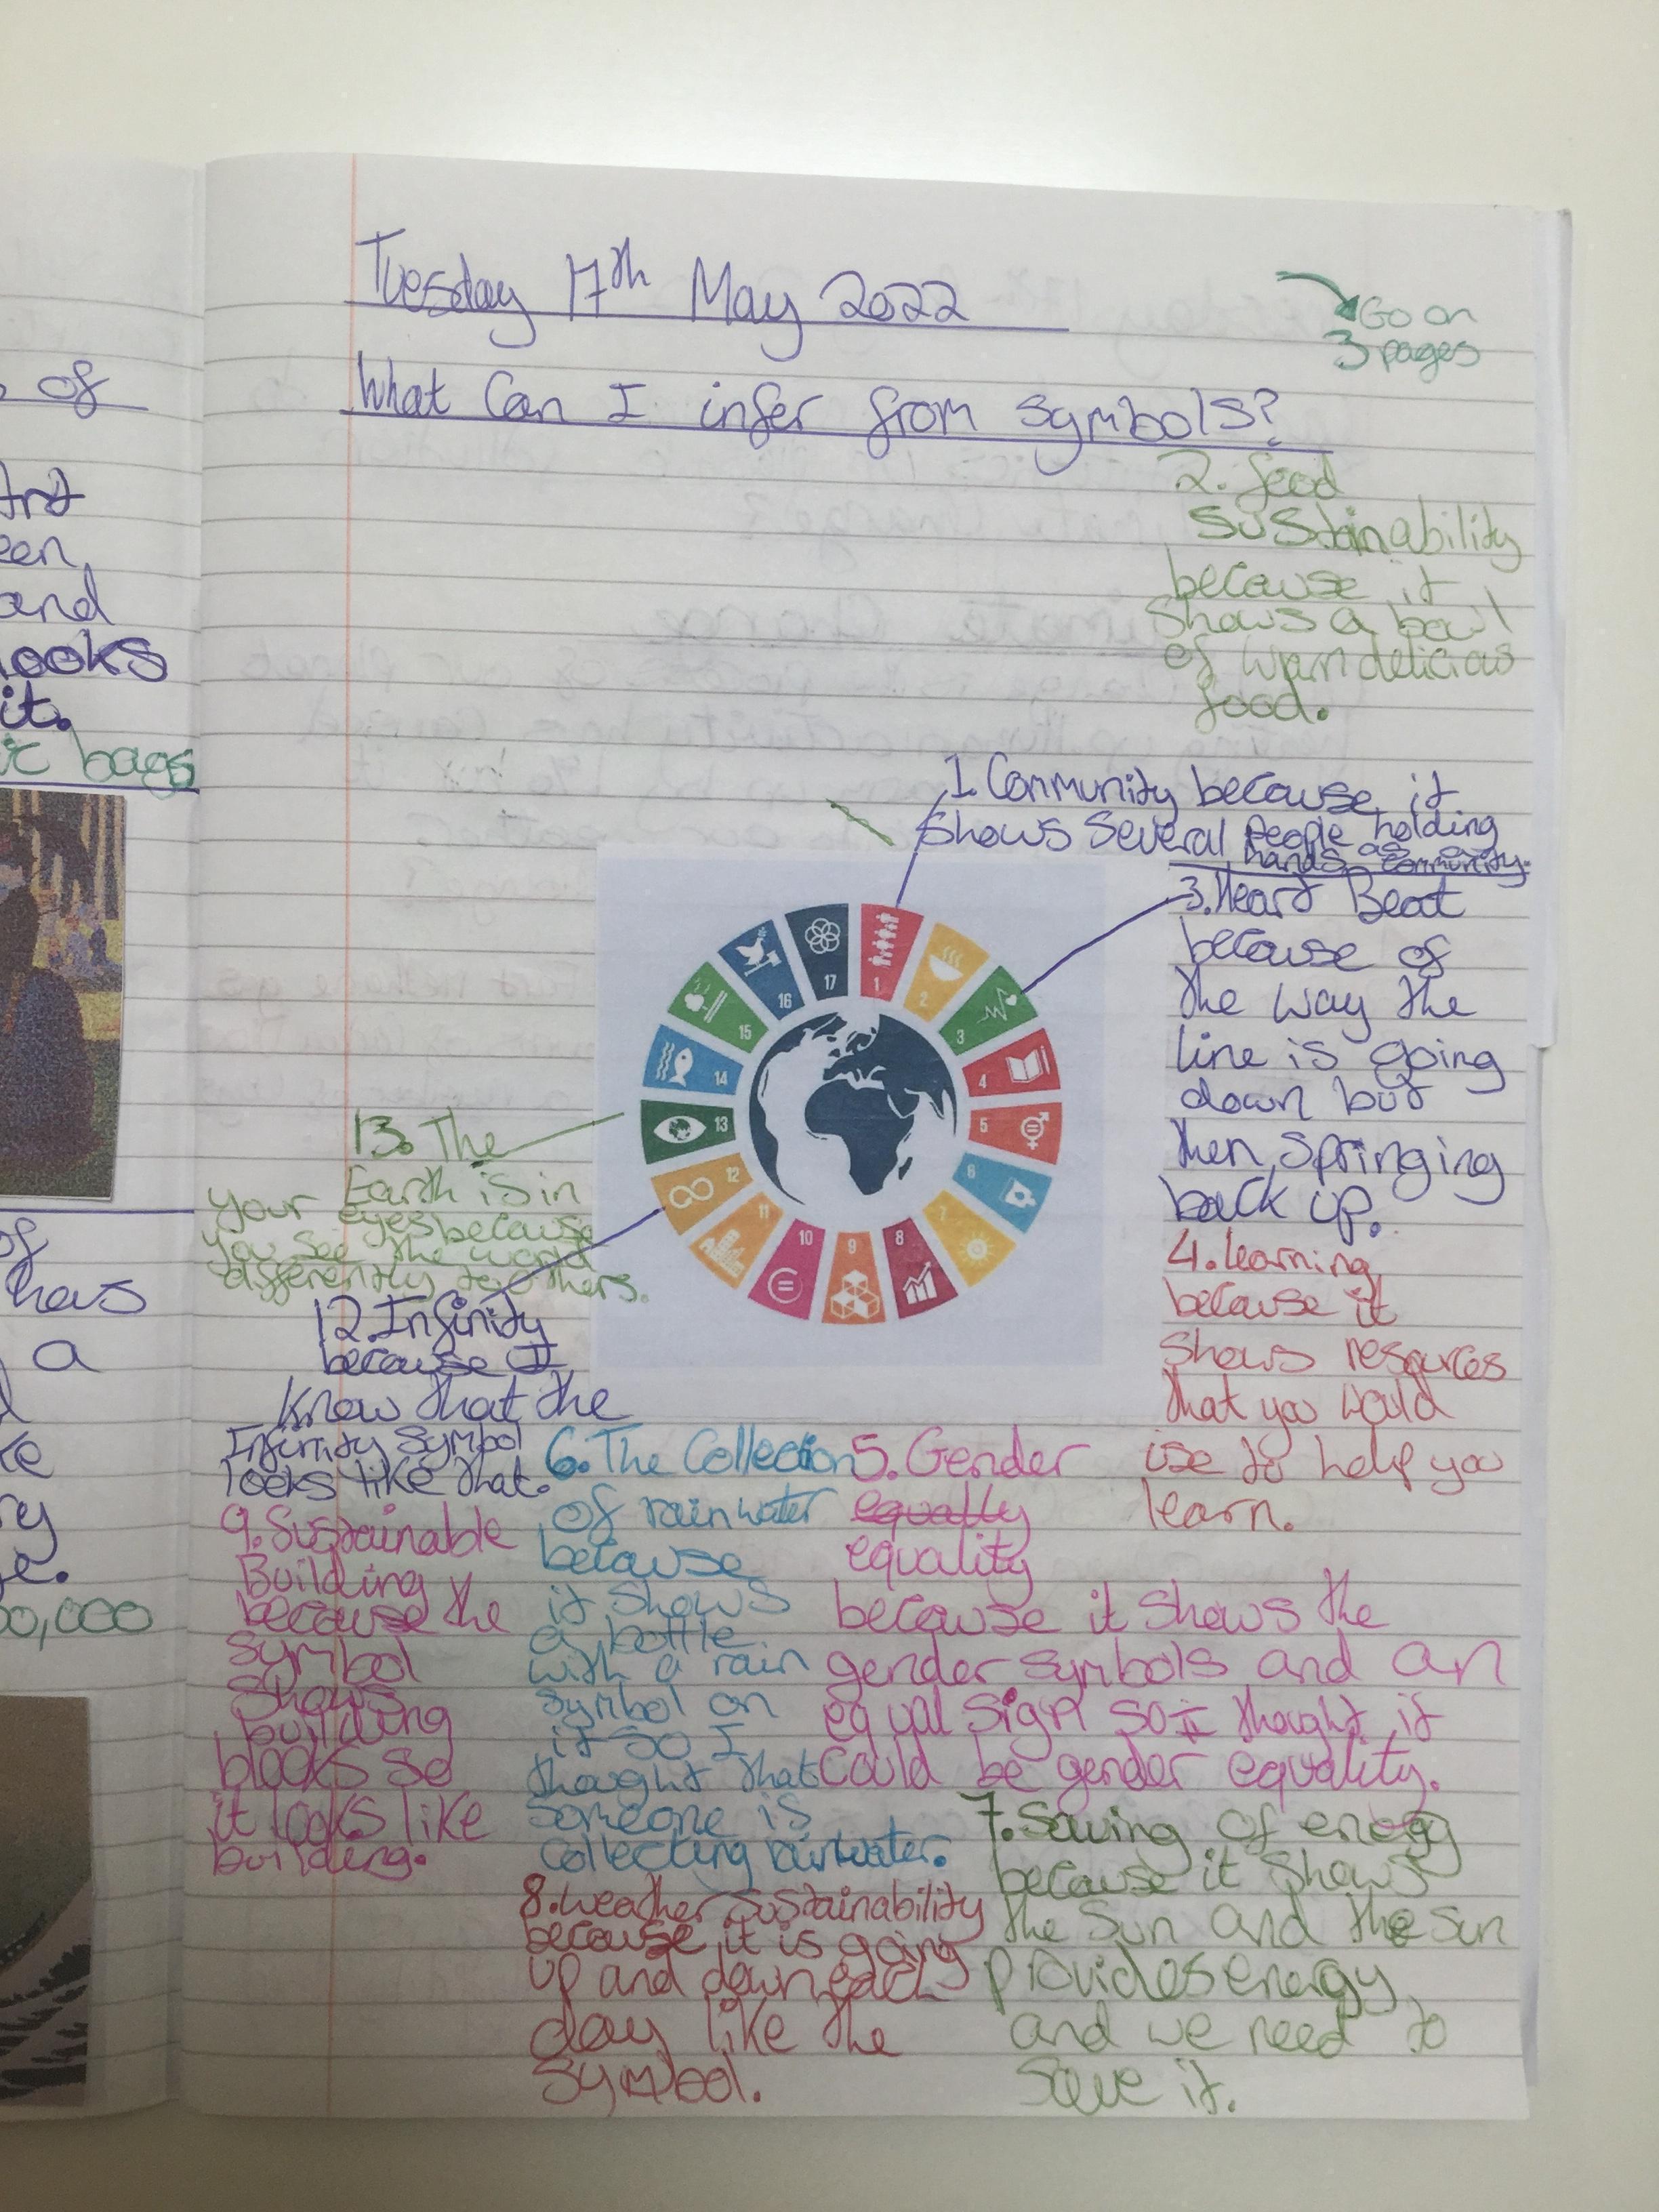 Tuesday 17th May 2022
Go on
3 pages
What Can I infer from symbols?
2. food
sustainability
because it
shows a bowl
of warm delicious
food.
1. Community because it
shows several people holding
hands as a community.
3. Heart Beat
because of
the way the
line is going
down but
then springing
back up.
4. learning
because it
shows resources
that you would
use to help you
learn.
1
2
3
4
5
6
7
8
9
10
11
12
13
14
15
16
17
13. The
Earth is in
your eyes because
you see the world
differently to others.
12. Infinity
because I
know that the
Infinity symbol
looks like that.
6. The Collection
of rainwater
because
it shows
a bottle
with a rain
symbol on
it so I
thought that
someone is
collecting rainwater.
5. Gender
equally
equality
because it shows the
gender symbols and an
equal sign so I thought it
could be gender equality.
9. Sustainable
Building
because the
symbol
shows
building
blocks so
it looks like
building.
7. Saving of energy
because it shows
the sun and the sun
provides energy
and we need to
save it.
8. weather sustainability
because it is going
up and down each
day like the
symbol.
of
een,
and
looks
it.
ic bags
of
has
a
ry
e.
00,000